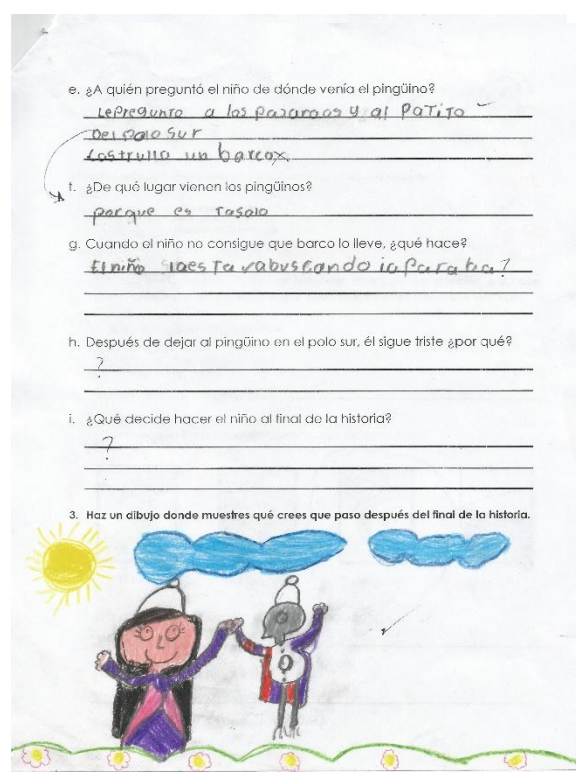 e. ¿A quién preguntó el niño de dónde venía el pingüino?
LePregunto a los pazaroos y al PaTiTo
Del polo Sur
Costrullo un barcox.
f. ¿De qué lugar vienen los pingüinos?
porque es Tasolo
g. Cuando el niño no consigue que barco lo lleve, ¿qué hace?
El niño buscando
h. Después de dejar al pingüino en el polo sur, él sigue triste ¿por qué?
?
i. ¿Qué decide hacer el niño al final de la historia?
?
3. Haz un dibujo donde muestres qué crees que paso después del final de la historia.